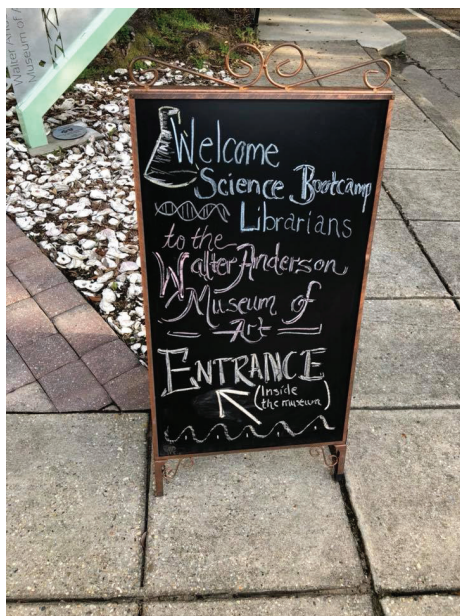 Walter An
Museum of A
Welcome
Science Bootcamp
Librarians
to the
Walter Anderson
Museum of
Art
ENTRANCE
(Inside
the museum)